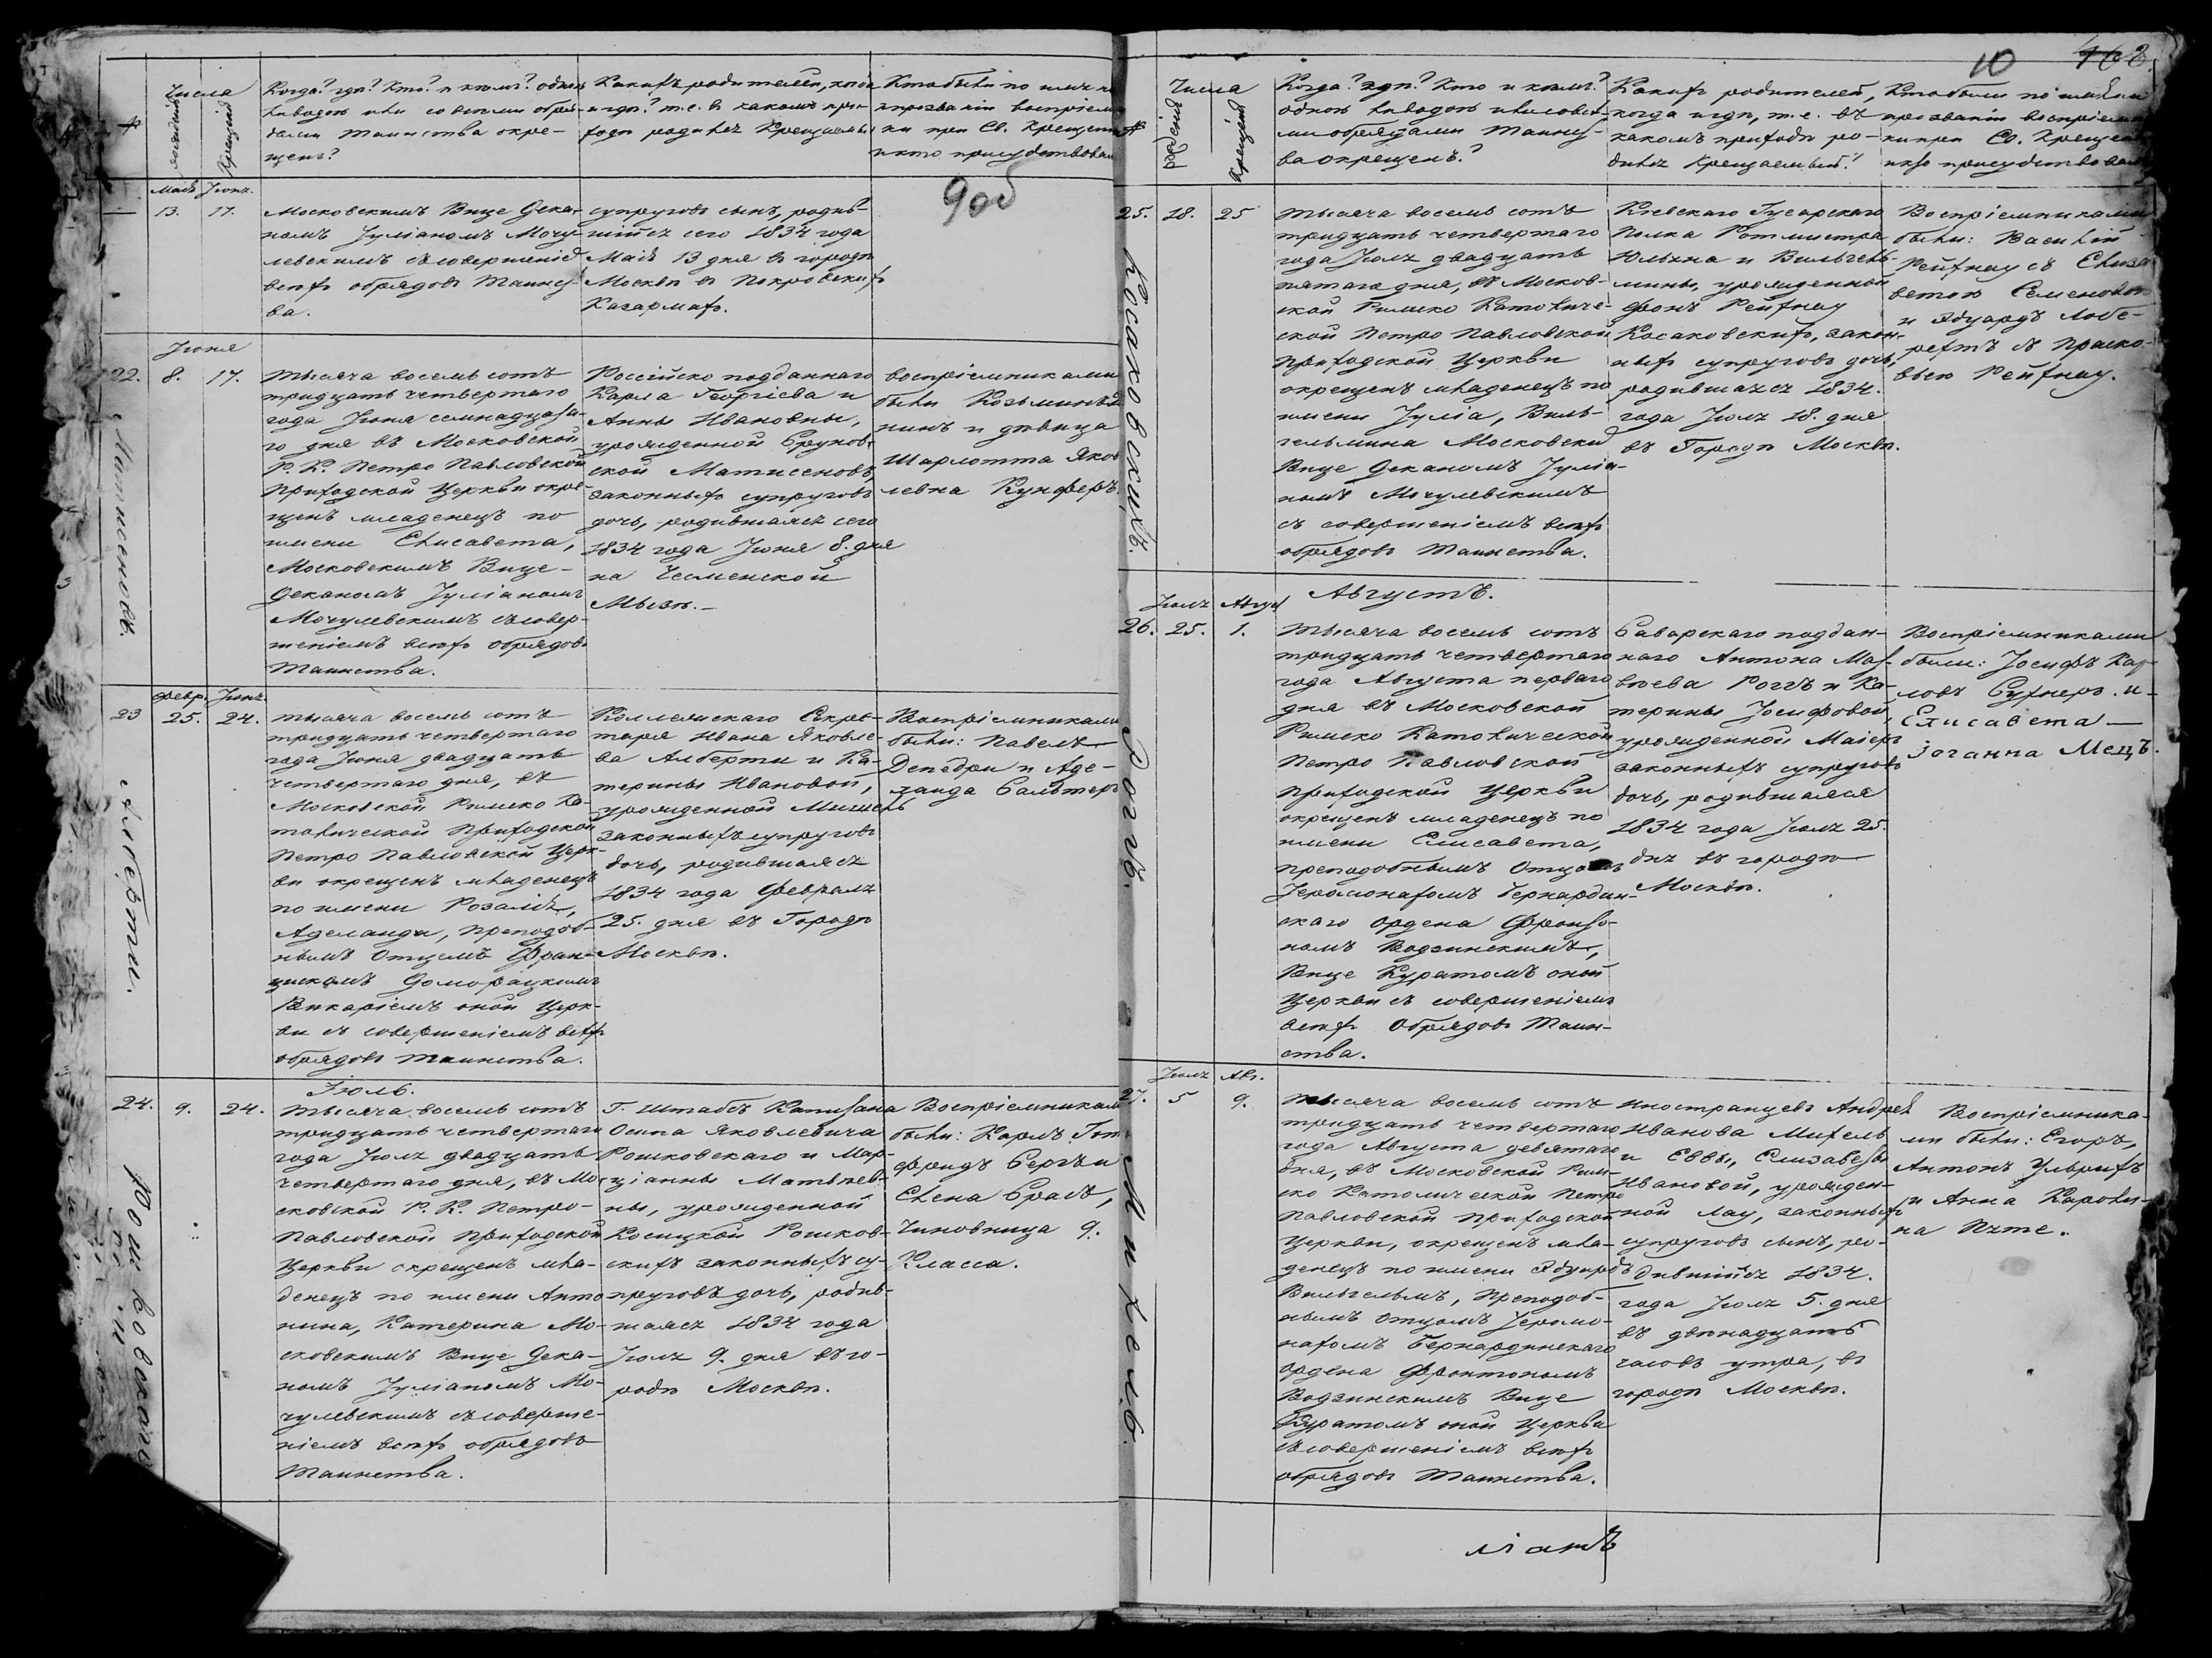 Числа
рожденія
Крещенія
Когда? гдѣ? Кто? и кѣмъ? одною
ли водою или со всѣми обря-
дами Таинства окре-
щенъ?
Какихъ родителей, когда
и гдѣ? т.е. въ какомъ при-
ходѣ родился Крещаемый
Кто были по имени и
прозванію воспріемни
ки при Св. Крещеніи
и кто присудствовалъ
90б
Маія Іюня.
13. 17.
Московскимъ Вице Дека-
номъ Іуліаномъ Мочу-
левскимъ съ совершеніе
всѣхъ обрядовъ Таинст
ва.
супруговъ сынъ, родив-
шійся сего 1834 года
Маія 13 дня въ городѣ
Москвѣ въ Покровскихъ
Казармахъ.
Іюня
22. 8. 17.
Матисеновъ.
Тысяча восемь сотъ
тридцать четвертаго
года Іюня семнадцата-
го дня въ Московской
Р. К. Петро Павловской
Приходской Церкви окре-
щенъ младенецъ по
имени Елисавета,
Московскимъ Вице-
Деканомъ Іуліаномъ
Мочулевскимъ съ совер-
шеніемъ всѣхъ обрядовъ
Таинства.
Россійско подданнаго
Карла Георгіева и
Анны Ивановны,
урожденной Брунов-
ской Матисеновъ,
законныхъ супруговъ
дочь, родившаяся сего
1834 года Іюня 8. дня
на Чесменской
Мызѣ.
воспріемниками
были
и дѣвица
Шарлотта Яков
левна Кунферъ.
Февр. Іюня.
23 25. 24.
Алберти.
Тысяча восемь сотъ
тридцать четвертаго
года Іюня двадцать
четвертаго дня, въ
Московской Римско Ка-
толической Приходской
Петро Павловской Церк-
ви окрещенъ младенецъ
по имени Розалія,
Аделаида, преподоб-
нымъ Отцемъ Фран-
цискомъ Доморацкимъ
Викаріемъ оной Церк-
ви съ совершеніемъ всѣхъ
обрядовъ таинства.
Коллежскаго Секре-
таря Ивана Яковле-
ва Алберти и Ка-
терины Ивановой,
урожденной Мишель
законныхъ супруговъ
дочь, родившаяся
1834 года Февраля
25. дня въ Городѣ
Москвѣ.
Воспріемниками
были: Павелъ
Депедри и Аде-
лаида Бальтеръ
Іюль.
24. 9. 24.
Рошковскаго
Тысяча восемь сотъ
тридцать четвертаго
года Іюля двадцать
четвертаго дня, въ Мо-
сковской Р. К. Петро-
Павловской Приходской
Церкви окрещенъ мла-
денецъ по имени Анто
нина, Катерина Мо-
сковскимъ Вице Дека-
номъ Іуліаномъ Мо-
чулевскимъ съ соверше-
ніемъ всѣхъ обрядовъ
Таинства.
Г. Штабсъ Капитана
Осипа Яковлевича
Рошковскаго и Мар-
ціанны Матвѣев-
ны, урожденной
Косицкой Рошков-
скихъ законныхъ су-
пруговъ дочь, родив-
шаяся 1834 года
Іюля 9. дня въ го-
родѣ Москвѣ.
Воспріемникам
были: Карлъ Гот
фридъ Бергъ и
Елена Брасъ,
Чиновница 9.
Класса.
10 168.
Числа
рожденія
Крещенія
Когда? гдѣ? Кто и кѣмъ?
одною ли водою или совсѣ-
ми обрядами Таинст-
ва окрещенъ?
Какихъ родителей,
когда и гдѣ, т.е. въ
какомъ приходѣ ро-
дился Крещаемый?
Кто были по имени
прозванію воспріемни
ки при Св. Крещен
и кто присудствовалъ
25. 18. 25
Косаковскихъ.
Тысяча восемь сотъ
тридцать четвертаго
года Іюля двадцать
пятаго дня, въ Москов-
ской Римско Католиче-
ской Петро Павловской
Приходской Церкви
окрещенъ младенецъ по
имени Іулія, Виль-
гельмина Московски
Вице Деканомъ Іуліа-
номъ Мочулевскимъ
съ совершеніемъ всѣхъ
обрядовъ Таинства.
Кіевскаго Гусарскаго
Полка Ротмистра
Юльяна и Вильгель-
мины, урожденной
фонъ Рейхнау
Косаковскихъ, закон-
ныхъ супруговъ дочь,
родившаяся 1834.
года Іюля 18. дня
въ Городѣ Москвѣ.
Воспріемниками
были: Василій
Рейхнау съ Елиза
ветою Семеновою
и Эдуардъ Лобе-
рехтъ съ Праско-
вьею Рейхнау.
Августъ.
Іюля Август
26. 25. 1.
Рогъ.
Тысяча восемь сотъ
тридцать четвертаго
года Августа перваго
дня въ Московской
Римско Католической
Петро Павловской
Приходской Церкви
окрещенъ младенецъ по
имени Елисавета,
преподобнымъ Отцомъ
Іеромонахомъ Бернардин-
скаго Ордена Фронто-
номъ Водзинскимъ,
Вице Куратомъ оной
Церкви съ совершеніемъ
всѣхъ Обрядовъ Таин-
ства.
Баварскаго поддан-
наго Антона Мат-
вѣева Рогъ и Ка-
терины Іосифовой,
урожденной Маіеръ
законныхъ супруговъ
дочь, родившаяся
1834 года Іюля 25.
дня въ городѣ
Москвѣ.
Воспріемниками
были: Іосифъ Кар
ловъ Сутнеръ и
Елисавета
Іоганна Мецъ.
Іюля Авг.
27. 5 9.
Михель.
Тысяча восемь сотъ
тридцать четвертаго
года Августа девятаго
дня, въ Московской Рим-
ско Католической Петро
Павловской Приходской
Церкви, окрещенъ мла-
денецъ по имени Эдуардъ
Вильгельмъ, Преподоб-
нымъ отцомъ Іеромо-
нахомъ Бернардинскаго
Ордена Фронтономъ
Водзинскимъ Вице
Куратомъ оной Церкви
съ совершеніемъ всѣхъ
обрядовъ Таинства.
Иностранцевъ Андрея
Иванова Михель
и Еввы, Елизаветы
Ивановой, урожден-
ной Лау, законныхъ
супруговъ сынъ, ро-
дившійся 1834.
года Іюля 5. дня
въ двѣнадцать
часовъ утра, въ
городѣ Москвѣ.
Воспріемника-
ми были: Егоръ,
Антонъ Ульрихъ
и Анна Кароли-
на